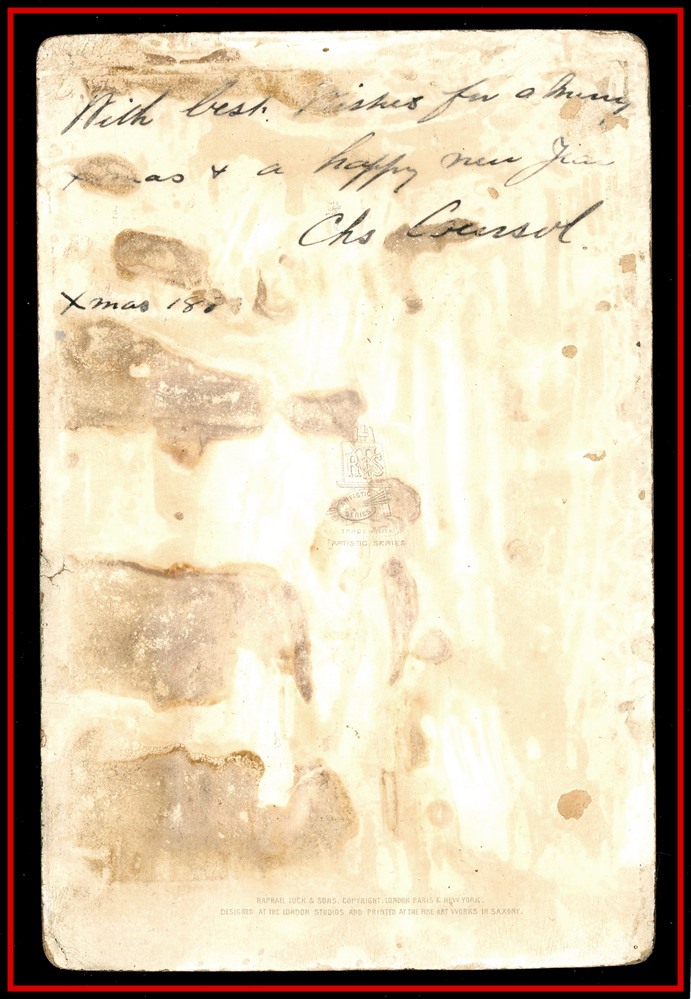 With best Wishes for a merry
Xmas & a happy new Year
Chs
Xmas 188
R T & S
ARTISTIC SERIES
TRADE MARK
"ARTISTIC" SERIES
RAPHAEL TUCK & SONS, COPYRIGHT, LONDON PARIS & NEW YORK
DESIGNED AT THE LONDON STUDIOS AND PRINTED AT THE FINE ART WORKS IN SAXONY.